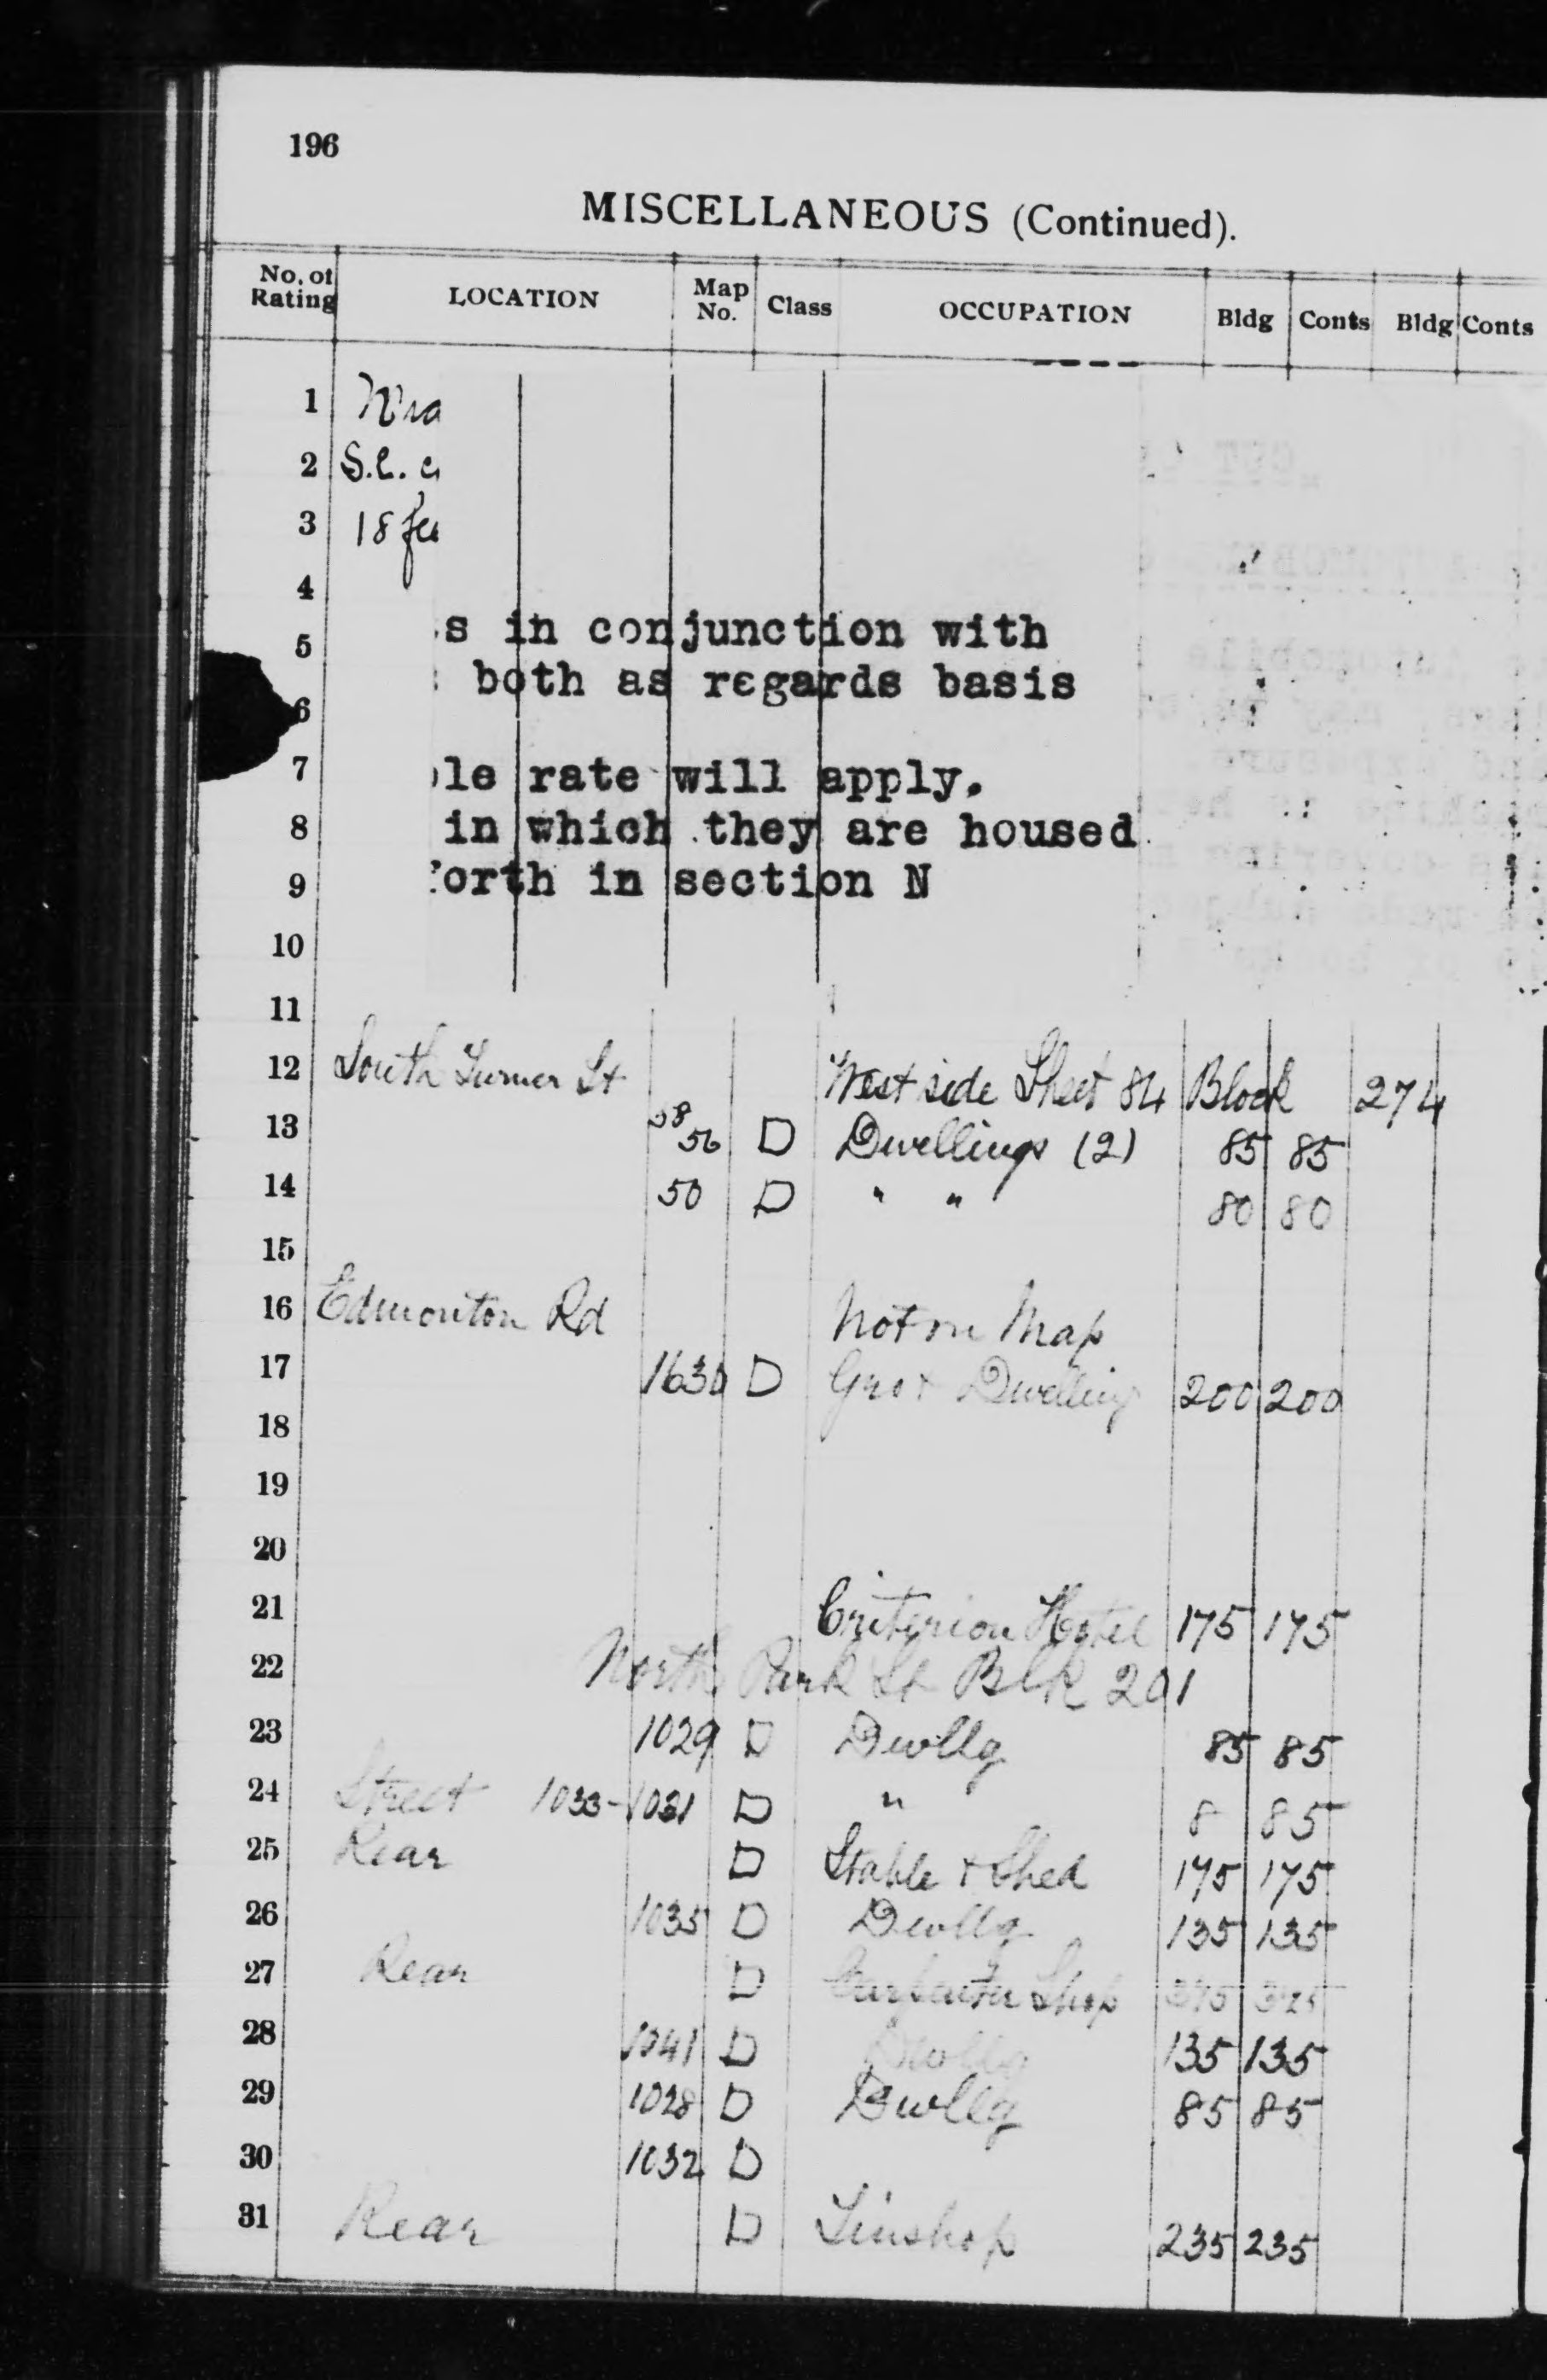 196
MISCELLANEOUS (Continued).
No. of Rating LOCATION Map No. Class OCCUPATION Bldg Conts Bldg Conts
1
2 S.E.
3 18
4
5 s in conjunction with
6 both as regards basis
7 le rate will apply.
8 in which they are housed
9 forth in section N
10
11
12 South Turner St West side Sheet 84 Block 274
13 58 56 D Dwellings (2) 85 85
14 50 D " " 80 80
15
16 Edmonton Rd Not on Map
17 1630 D Dwelling 200 200
18
19
20
21 Criterion Hotel 175 175
22 North Park St Blk 201
23 1029 D Dwllg 85 85
24 Street 1033-1031 D " 8 85
25 Rear D Stable + Shed 175 175
26 1035 D Dwllg 135 135
27 Rear D Carpenter Shop 375 325
28 1041 D Dwllg 135 135
29 1028 D Dwllg 85 85
30 1032 D
31 Rear D Tinshop 235 235